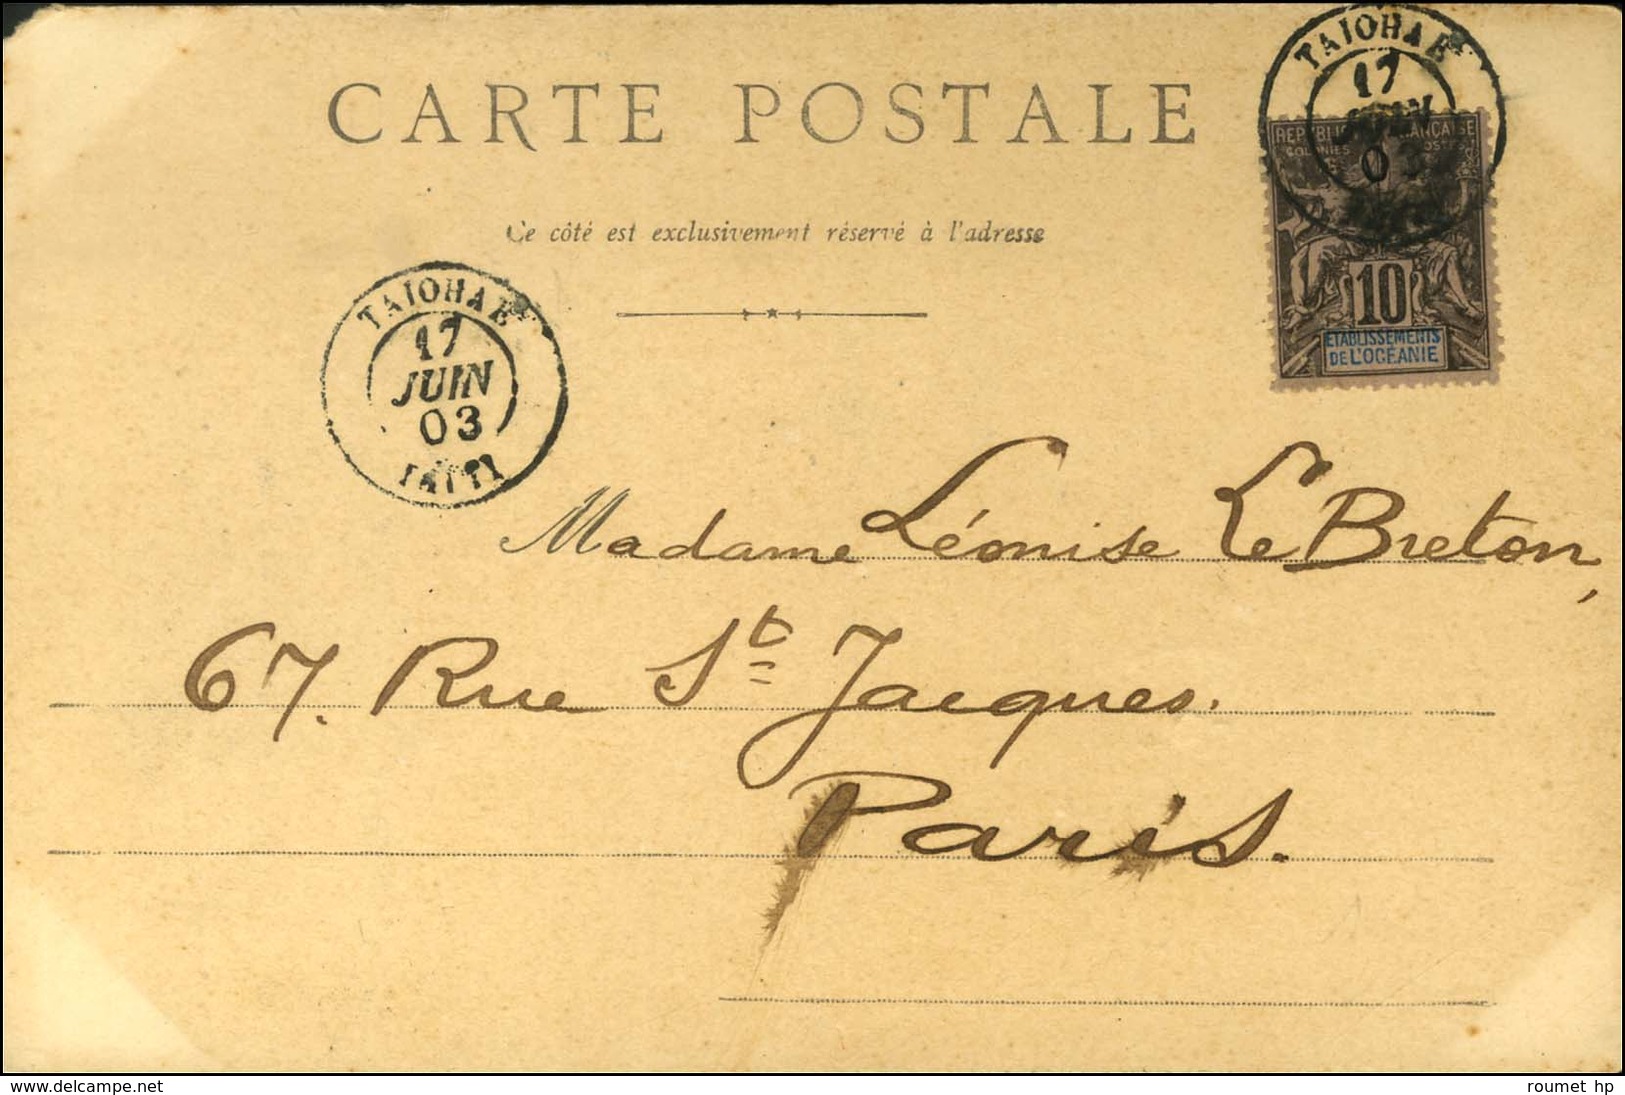 CARTE POSTALE
TAIOHAE
17
JUIN
03
REPUBLIQUE FRANÇAISE
COLONIES POSTES
10
ETABLISSEMENTS
DE L'OCÉANIE
Ce côté est exclusivement réservé à l'adresse
TAIOHAE
17
JUIN
03
TAITI
Madame Léonise Le Breton,
67. Rue St Jacques.
Paris.
delcampe.net
roumet hp